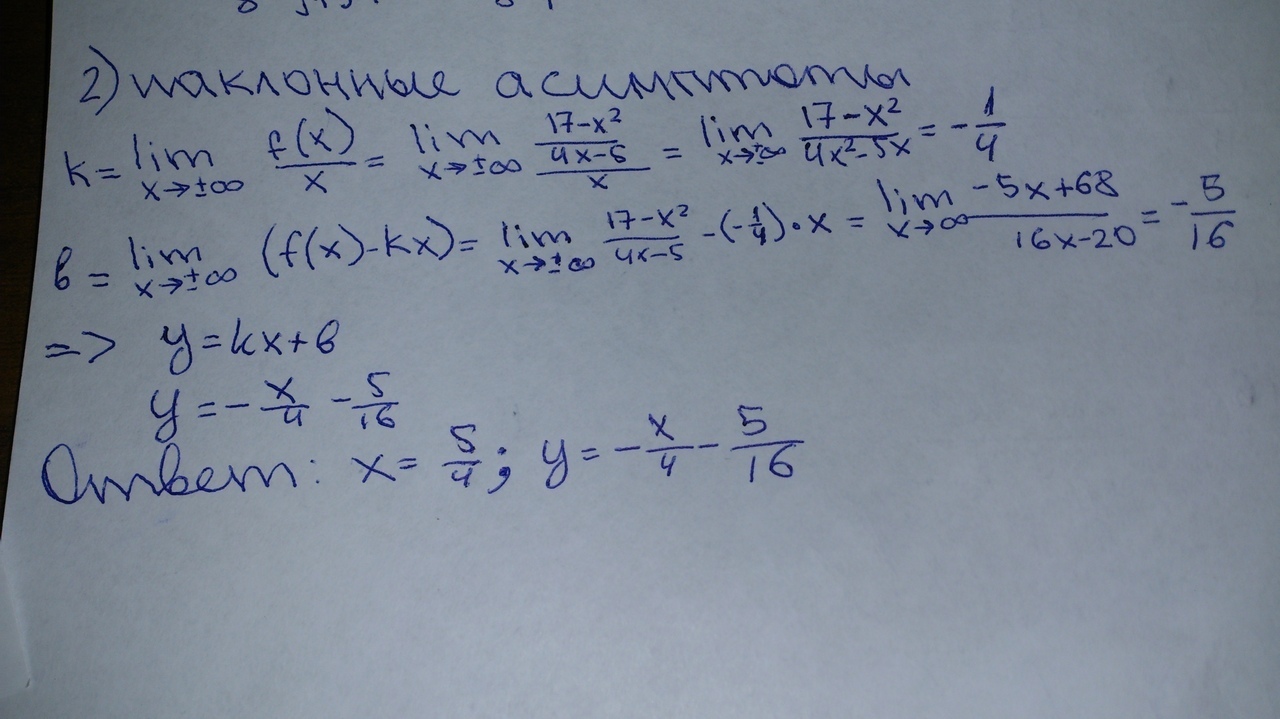 2) наклонные асимптоты
k = lim x→±∞ f(x)/x = lim x→±∞ ((17-x²)/(4x-5))/x = lim x→±∞ (17-x²)/(4x²-5x) = -1/4
b = lim x→±∞ (f(x)-kx) = lim x→±∞ (17-x²)/(4x-5) -(-1/4)·x = lim x→∞ (-5x+68)/(16x-20) = -5/16
=> y=kx+b
y = -x/4 - 5/16
Ответ: x = 5/4; y = -x/4 - 5/16